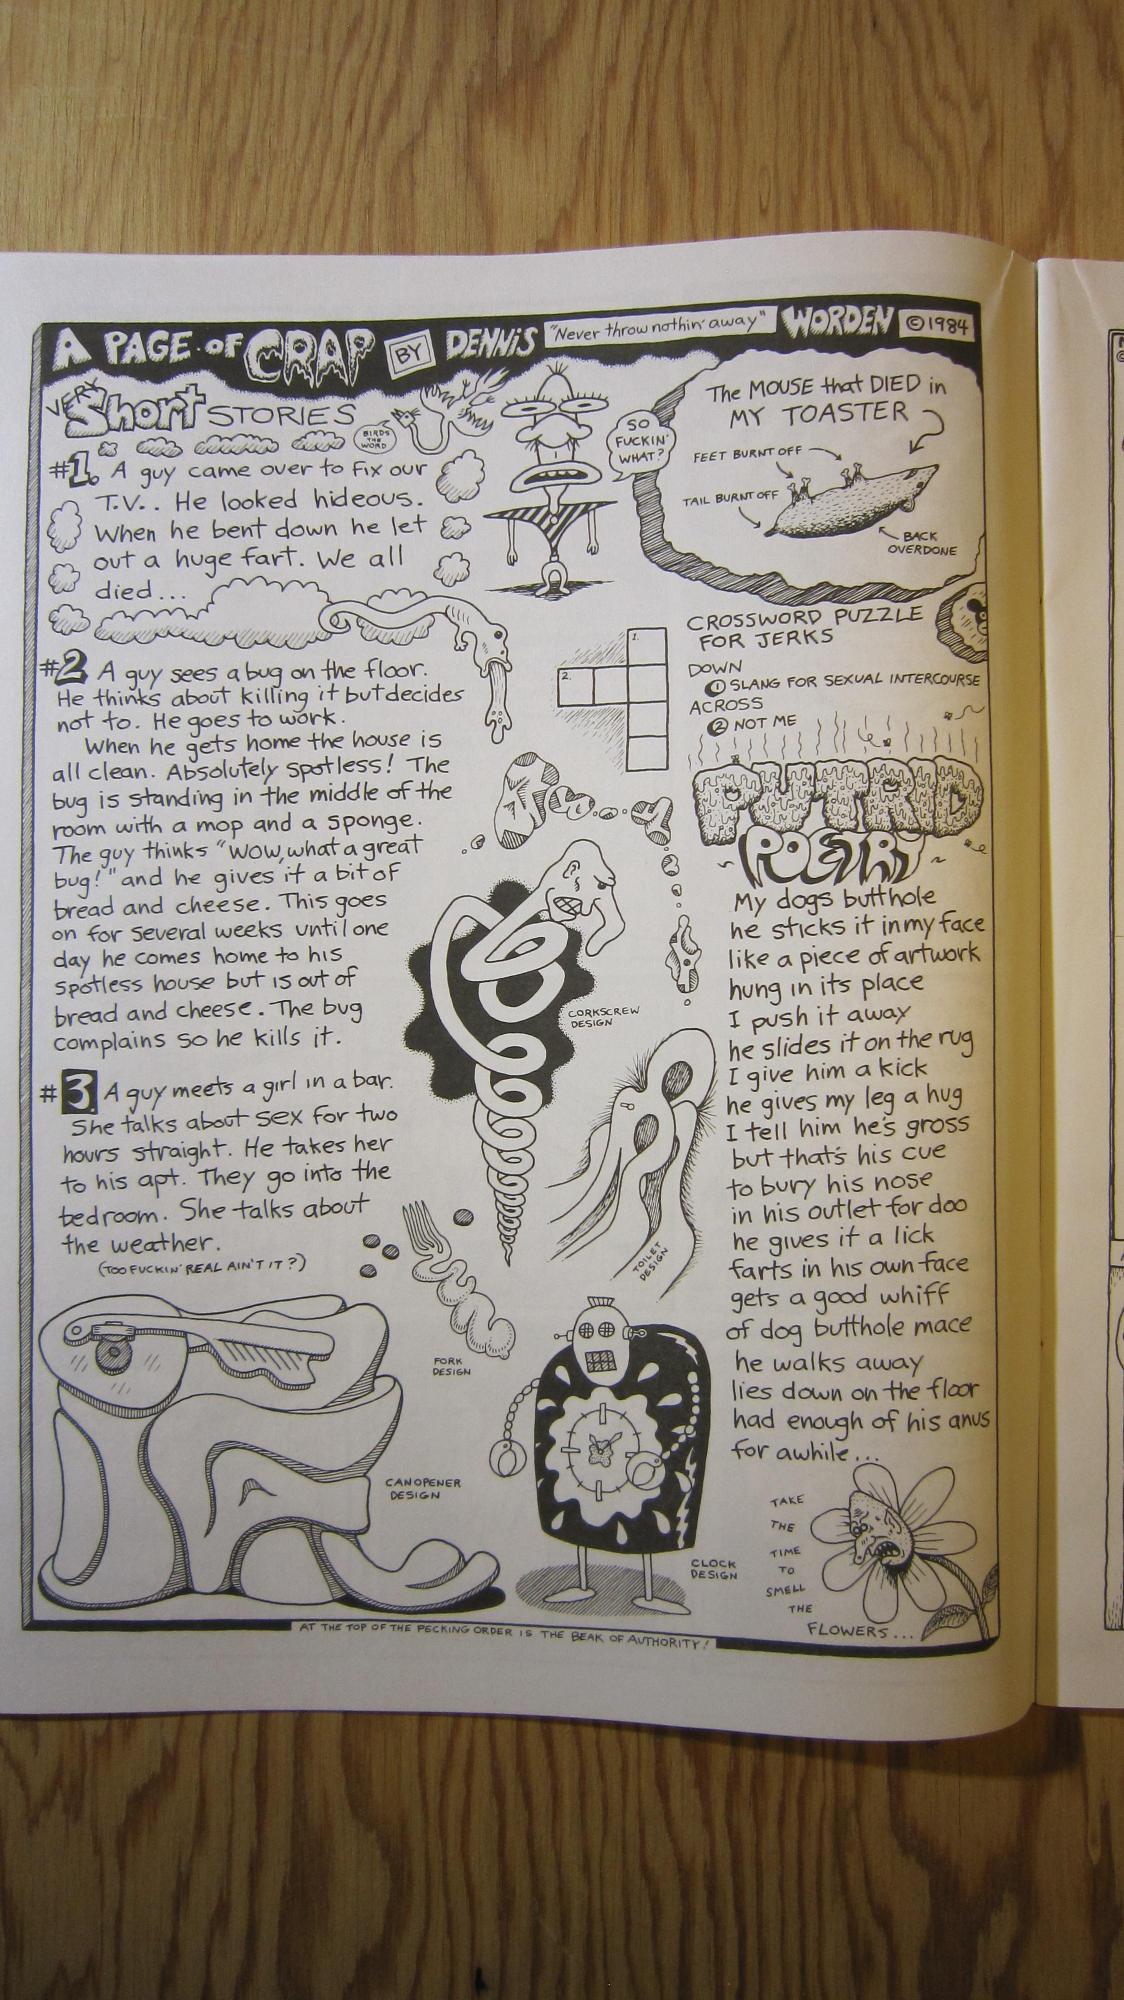 A PAGE OF CRAP BY DENNIS "Never throw nothin' away" WORDEN ©1984
VERY Short STORIES
BIRDS
THE
WORD
#1. A guy came over to fix our
T.V.. He looked hideous.
When he bent down he let
out a huge fart. We all
died...
SO
FUCKIN'
WHAT?
The MOUSE that DIED in
MY TOASTER
FEET BURNT OFF
TAIL BURNT OFF
BACK
OVERDONE
#2 A guy sees a bug on the floor.
He thinks about killing it but decides
not to. He goes to work.
When he gets home the house is
all clean. Absolutely spotless! The
bug is standing in the middle of the
room with a mop and a sponge.
The guy thinks "WOW, what a great
bug!" and he gives it a bit of
bread and cheese. This goes
on for several weeks until one
day he comes home to his
spotless house but is out of
bread and cheese. The bug
complains so he kills it.
#3. A guy meets a girl in a bar.
She talks about sex for two
hours straight. He takes her
to his apt. They go into the
bedroom. She talks about
the weather.
(TOO FUCKIN' REAL AIN'T IT?)
CROSSWORD PUZZLE
FOR JERKS
DOWN
① SLANG FOR SEXUAL INTERCOURSE
ACROSS
② NOT ME
1.
2.
CORKSCREW
DESIGN
TOILET
DESIGN
FORK
DESIGN
CANOPENER
DESIGN
CLOCK
DESIGN
PUTRID
~POETRY~
My dogs butthole
he sticks it in my face
like a piece of artwork
hung in its place
I push it away
he slides it on the rug
I give him a kick
he gives my leg a hug
I tell him he's gross
but that's his cue
to bury his nose
in his outlet for doo
he gives it a lick
farts in his own face
gets a good whiff
of dog butthole mace
he walks away
lies down on the floor
had enough of his anus
for awhile...
TAKE
THE
TIME
TO
SMELL
THE
FLOWERS...
AT THE TOP OF THE PECKING ORDER IS THE BEAK OF AUTHORITY!